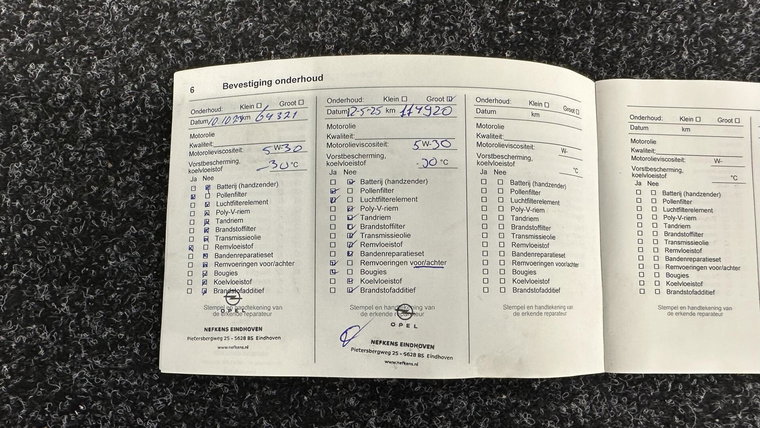 6 Bevestiging onderhoud
Onderhoud: Klein Groot
Datum km 64321
Motorolie
Kwaliteit:
Motorolieviscositeit: 5W-30
Vorstbescherming,
koelvloeistof -30°C
Ja Nee
Batterij (handzender)
Pollenfilter
Luchtfilterelement
Poly-V-riem
Tandriem
Brandstoffilter
Transmissieolie
Remvloeistof
Bandenreparatieset
Remvoeringen voor/achter
Bougies
Koelvloeistof
Brandstofadditief
Stempel en handtekening van
de erkende reparateur
OPEL
NEFKENS EINDHOVEN
Pietersbergweg 25 - 5628 BS Eindhoven
www.nefkens.nl
Onderhoud: Klein Groot
Datum 12-5-25 km 114920
Motorolie
Kwaliteit:
Motorolieviscositeit: 5W-30
Vorstbescherming,
koelvloeistof -30°C
Ja Nee
Batterij (handzender)
Pollenfilter
Luchtfilterelement
Poly-V-riem
Tandriem
Brandstoffilter
Transmissieolie
Remvloeistof
Bandenreparatieset
Remvoeringen voor/achter
Bougies
Koelvloeistof
Brandstofadditief
Stempel en handtekening van
de erkende reparateur
OPEL
NEFKENS EINDHOVEN
Pietersbergweg 25 - 5628 BS Eindhoven
www.nefkens.nl
Onderhoud: Klein Groot
Datum km
Motorolie
Kwaliteit:
Motorolieviscositeit: W-
Vorstbescherming,
koelvloeistof °C
Ja Nee
Batterij (handzender)
Pollenfilter
Luchtfilterelement
Poly-V-riem
Tandriem
Brandstoffilter
Transmissieolie
Remvloeistof
Bandenreparatieset
Remvoeringen voor/achter
Bougies
Koelvloeistof
Brandstofadditief
Stempel en handtekening van
de erkende reparateur
Onderhoud: Klein Groot
Datum km
Motorolie
Kwaliteit:
Motorolieviscositeit: W-
Vorstbescherming,
koelvloeistof °C
Ja Nee
Batterij (handzender)
Pollenfilter
Luchtfilterelement
Poly-V-riem
Tandriem
Brandstoffilter
Transmissieolie
Remvloeistof
Bandenreparatieset
Remvoeringen voor/achter
Bougies
Koelvloeistof
Brandstofadditief
Stempel en handtekening van
de erkende reparateur